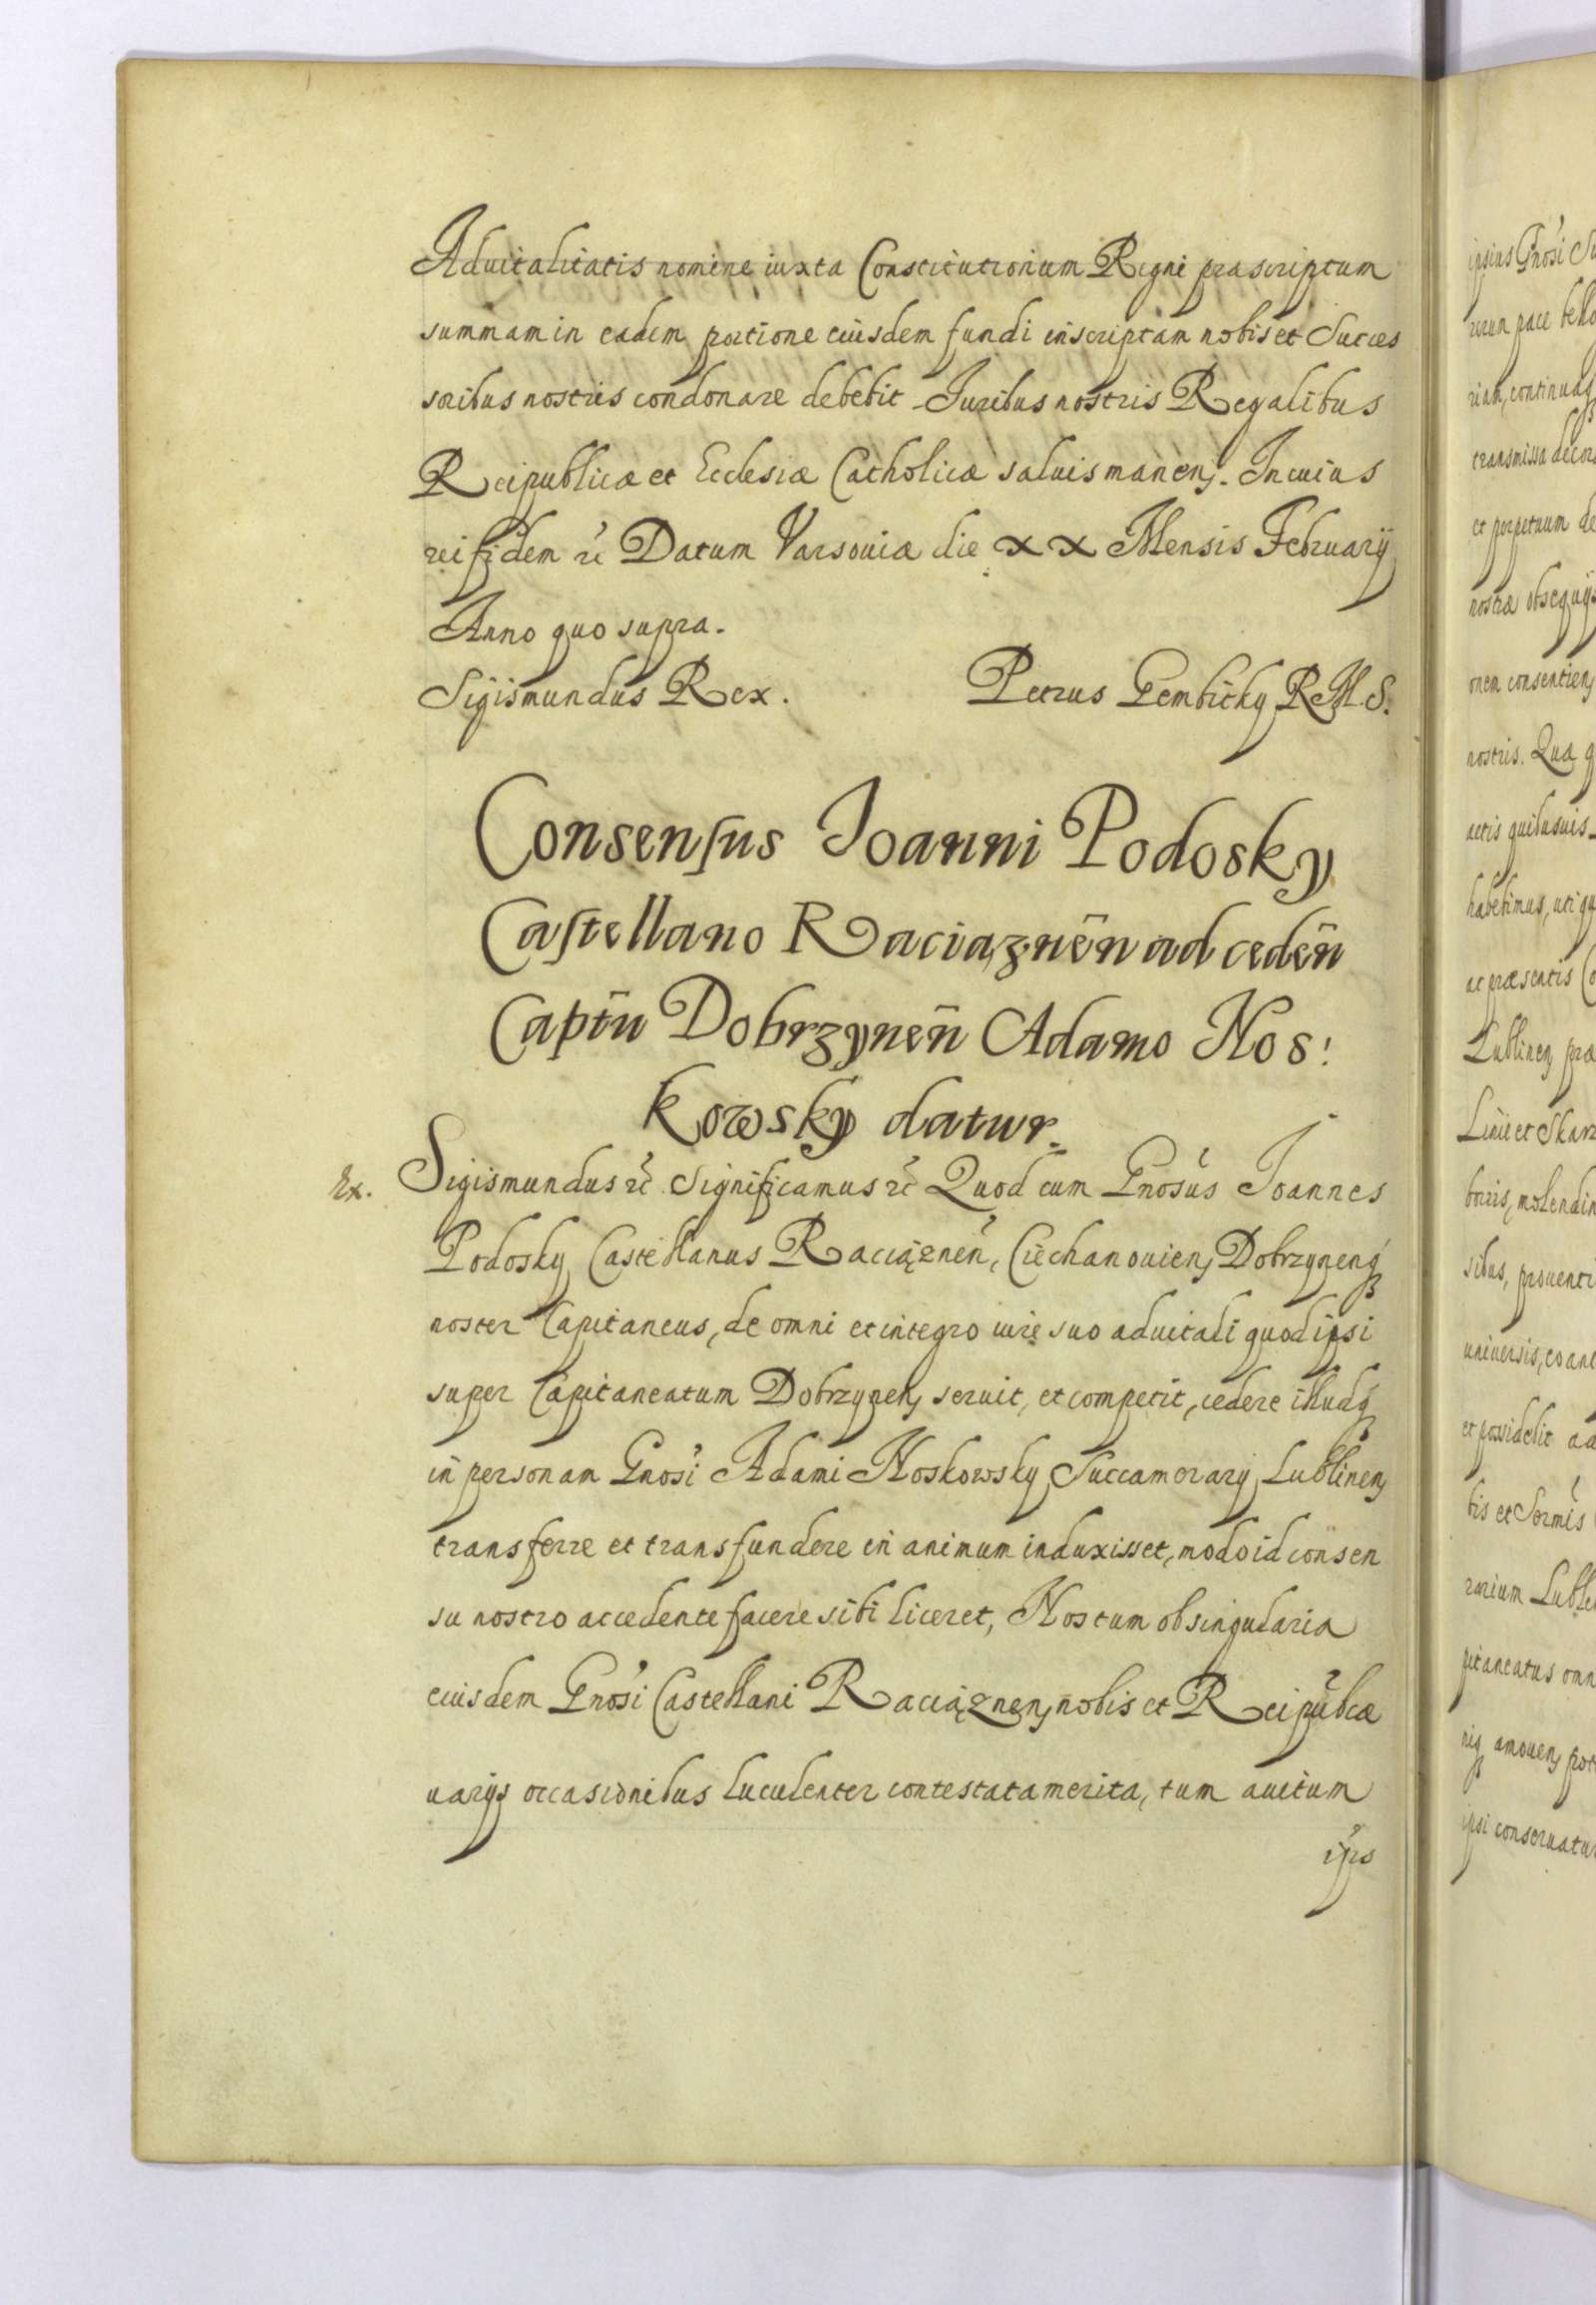 Aduitalitatis nomine iuxta Constitutionum Regni præscriptum
summam in eadem portione eiusdem fundi inscriptam nobis et Succes
soribus nostris condonare debebit. Juribus nostris Regalibus
Reipublicæ et Ecclesiæ Catholicæ saluis manen. In cuius
rei fidem etc Datum Varsouiæ die XX Mensis February
Anno quo supra.
Sigismundus Rex.
Petrus Gembicky R.M.S.
Consensus Joanni Podosky
Castellano Raciązneñ ad cedeñ
Captũ Dobrzyneñ Adamo Nos:
kowsky datur.
Ex. Sigismundus etc Significamus etc Quod cum Gnosus Joannes
Podosky Castellanus Raciąznen, Ciechanouien, Dobrzynenq
noster Capitaneus, de omni et integro iure suo aduitali quod ipsi
super Capitaneatum Dobrzynen seruit, et competit, cedere illudq
in personam Gnosi Adami Noskowsky Succamerary Lublinen
transferre et transfundere in animum induxisset, modo id consen
su nostro accedente facere sibi liceret, Nos tum ob singularia
eiusdem Gnosi Castellani Raciąznen nobis et Reipubcæ
uarijs occasionibus luculenter contestata merita, tum auitum
ips
ipsius Gnosi
rerum pace
riam, continuaq
transmissa
et perpetuum de
nostræ obsequijs
onem consentien
nostris. Qua
actis quibusuis
habebimus, uti
ac præsentis
Lublinen præ
et Skarz
molendin
sibus, prouenti
uniuersis, eo
et possidebit
bis et
rarium Lublen
pitaneatus omn
amouen
ipsi conseruatu